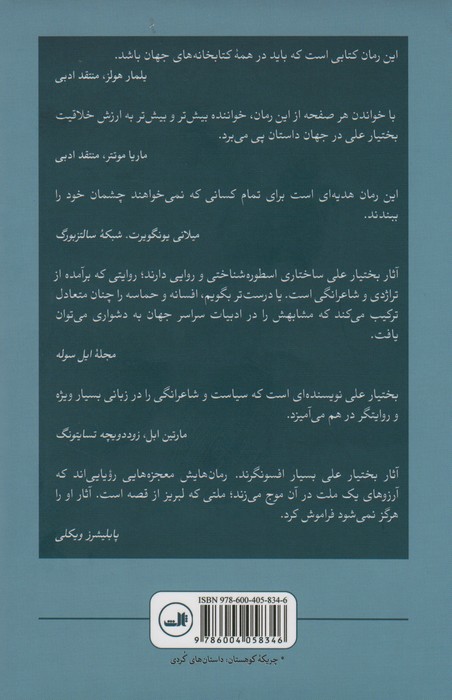 این رمان کتابی است که باید در همهٔ کتابخانه‌های جهان باشد.
یلمار هولز، منتقد ادبی
با خواندن هر صفحه از این رمان، خواننده بیش‌تر و بیش‌تر به ارزش خلاقیت
بختیار علی در جهان داستان پی می‌برد.
ماریا مونتر، منتقد ادبی
این رمان هدیه‌ای است برای تمام کسانی که نمی‌خواهند چشمان خود را
ببندند.
میلانی یونگویرت. شبکهٔ سالتزبورگ
آثار بختیار علی ساختاری اسطوره‌شناختی و روایی دارند؛ روایتی که برآمده از
تراژدی و شاعرانگی است. یا درست‌تر بگویم، افسانه و حماسه را چنان متعادل
ترکیب می‌کند که مشابهش را در ادبیات سراسر جهان به دشواری می‌توان
یافت.
مجلهٔ ابل سوله
بختیار علی نویسنده‌ای است که سیاست و شاعرانگی را در زبانی بسیار ویژه
و روایتگر در هم می‌آمیزد.
مارتین ابل، زوددویچه تسایتونگ
آثار بختیار علی بسیار افسونگرند. رمان‌هایش معجزه‌هایی رؤیایی‌اند که
آرزوهای یک ملت در آن موج می‌زند؛ ملتی که لبریز از قصه است. آثار او را
هرگز نمی‌شود فراموش کرد.
پابلیشرز ویکلی
ISBN 978-600-405-834-6
ثالث
9 786004 058346
* چریکهٔ کوهستان: داستان‌های کُردی